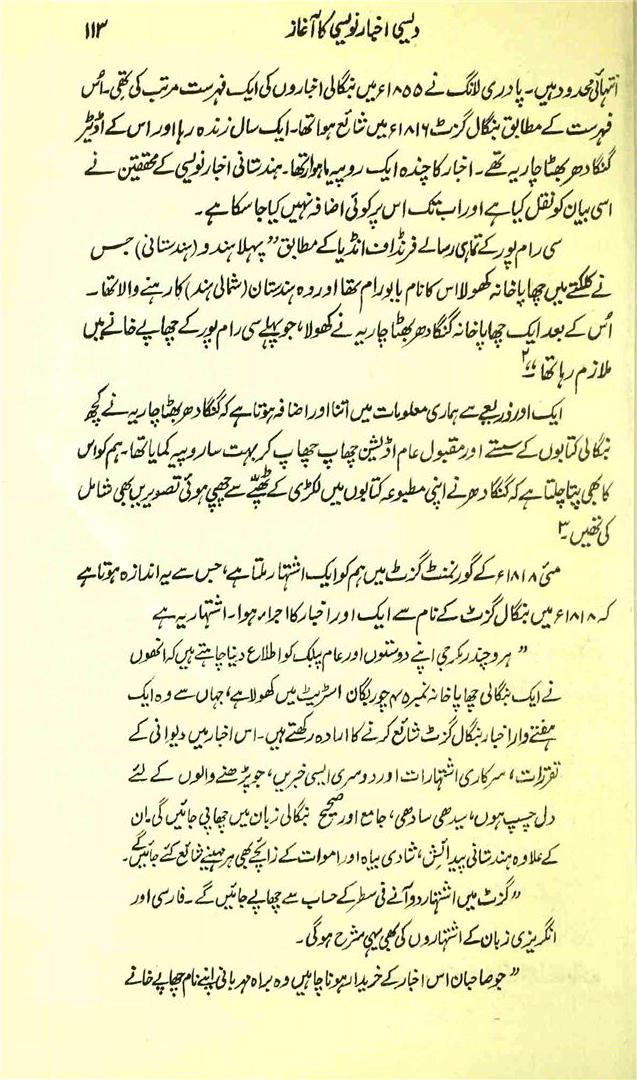 دیسی اخبار نویسی کا آغاز ۱۱۳
انتہائی محدود ہیں۔ پادری لانگ نے ۱۸۵۵ء میں بنگالی اخباروں کی ایک فہرست مرتب کی تھی۔ اُس
فہرست کے مطابق بنگال گزٹ ۱۸۱۶ء میں شائع ہوا تھا۔ ایک سال زندہ رہا اور اس کے اڈیٹر
گنگا دھر بھٹا چاریہ تھے۔ اخبار کا چندہ ایک روپیہ ماہوار تھا۔ ہندستانی اخبار نویسی کے محققین نے
اسی بیان کو نقل کیا ہے اور اب تک اس پر کوئی اضافہ نہیں کیا جا سکا ہے۔
سی رام پور کے تماہی رسالے فرنڈ اف انڈیا کے مطابق ”پہلا ہندو (ہندستانی) جس
نے کلکتے میں چھاپا خانہ کھولا اس کا نام بابو رام تھا اور وہ ہندستان (شمالی ہند) کا رہنے والا تھا۔
اُس کے بعد ایک چھاپا خانہ گنگا دھر بھٹا چاریہ نے کھولا، جو پہلے سی رام پور کے چھاپے خانے میں
ملازم رہا تھا“ ۲
ایک اور ذریعے سے ہماری معلومات میں اتنا اور اضافہ ہوتا ہے کہ گنگا دھر بھٹا چاریہ نے کچھ
بنگالی کتابوں کے سستے اور مقبول عام اڈیشن چھاپ چھاپ کر بہت سارو پیہ کمایا تھا۔ ہم کو اس
کا بھی پتا چلتا ہے کہ گنگا دھر نے اپنی مطبوعہ کتابوں میں لکڑی کے ٹھپے سے چھپی ہوئی تصویریں بھی شامل
کی تھیں۔ ۳
مئی ۱۸۱۸ء کے گورنمنٹ گزٹ میں ہم کو ایک اشتہار ملتا ہے، جس سے یہ اندازہ ہوتا ہے
کہ ۱۸۱۸ء میں بنگال گزٹ کے نام سے ایک اور اخبار کا اجراء ہوا۔ اشتہار یہ ہے
”ہرو چندر مکرجی اپنے دوستوں اور عام پبلک کو اطلاع دینا چاہتے ہیں کہ انھوں
نے ایک بنگالی چھاپا خانہ نمبر ۴۵ چور بگان اسٹریٹ میں کھولا ہے، جہاں سے وہ ایک
ہفتے وار اخبار بنگال گزٹ شائع کرنے کا ارادہ رکھتے ہیں۔ اس اخبار میں دیوانی کے
تقررات، سرکاری اشتہارات اور دوسری ایسی خبریں، جو پڑھنے والوں کے لئے
دل چسپ ہوں، سیدھی سادھی، جامع اور صحیح بنگالی زبان میں چھاپی جائیں گی۔ ان
کے علاوہ ہندستانی پیدائش، شادی بیاہ اور اموات کے زائچے بھی ہر مہینے شائع کئے جائیں گے۔
”گزٹ میں اشتہار دو آنے فی سطر کے حساب سے چھاپے جائیں گے۔ فارسی اور
انگریزی زبان کے اشتہاروں کی بھی یہی شرح ہوگی۔
”جو صاحبان اس اخبار کے خریدار ہونا چاہیں وہ براہ مہربانی اپنے نام چھاپے خانے